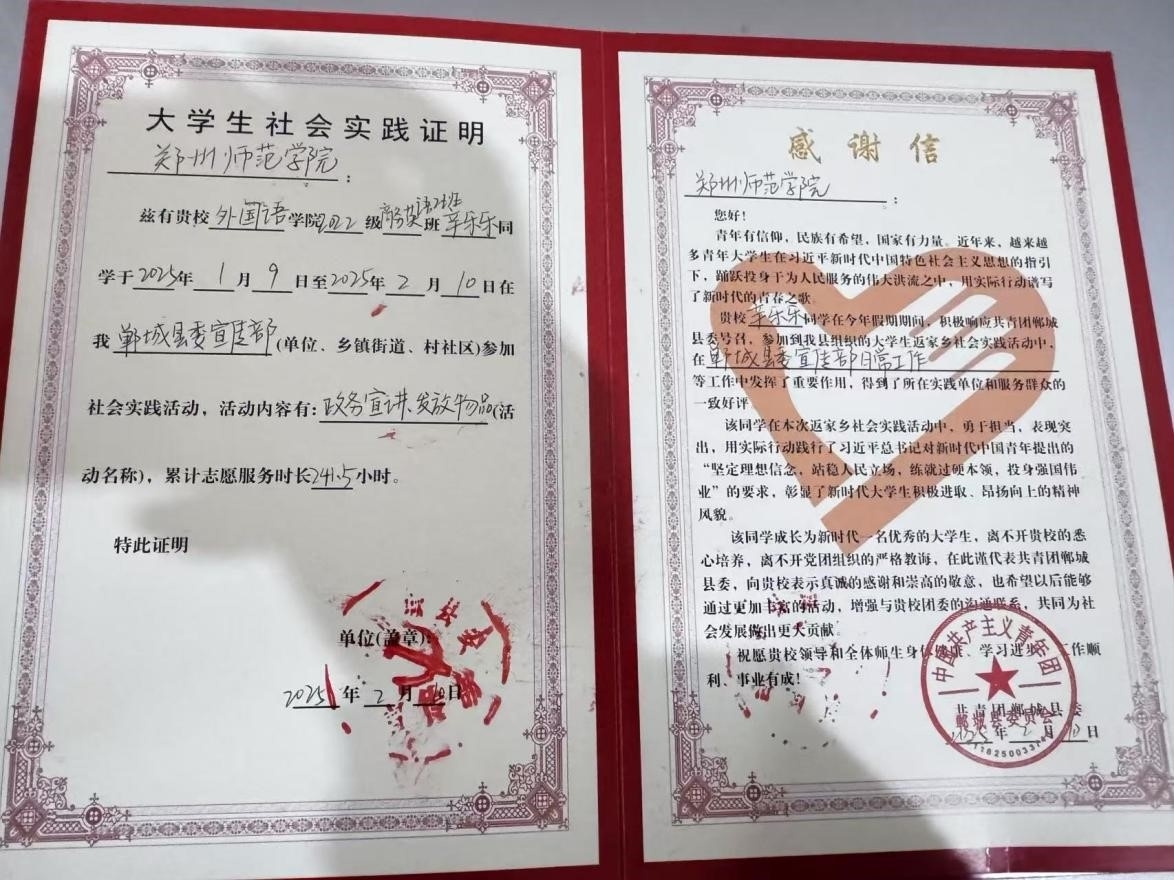 大学生社会实践证明
郑州师范学院：
兹有贵校外国语学院2022级商务英语2班辛乐乐同
学于2025年1月9日至2025年2月10日在
我郸城县委宣传部(单位、乡镇街道、村社区)参加
社会实践活动，活动内容有：政务宣讲、发放物品(活
动名称)，累计志愿服务时长241.5小时。
特此证明
单位(盖章)：
2025年2月10日
感谢信
郑州师范学院：
您好！
青年有信仰，民族有希望，国家有力量。近年来，越来越
多青年大学生在习近平新时代中国特色社会主义思想的指引
下，踊跃投身于为人民服务的伟大洪流之中，用实际行动谱写
了新时代的青春之歌。
贵校辛乐乐同学在今年假期期间，积极响应共青团郸城
县委号召，参加到我县组织的大学生返家乡社会实践活动中，
在郸城县委宣传部日常工作
等工作中发挥了重要作用，得到了所在实践单位和服务群众的
一致好评。
该同学在本次返家乡社会实践活动中，勇于担当，表现突
出，用实际行动践行了习近平总书记对新时代中国青年提出的
“坚定理想信念，站稳人民立场，练就过硬本领，投身强国伟
业”的要求，彰显了新时代大学生积极进取、昂扬向上的精神
风貌。
该同学成长为新时代一名优秀的大学生，离不开贵校的悉
心培养，离不开党团组织的严格教诲，在此谨代表共青团郸城
县委，向贵校表示真诚的感谢和崇高的敬意，也希望以后能够
通过更加丰富的活动，增强与贵校团委的沟通联系，共同为社
会发展做出更大贡献。
祝愿贵校领导和全体师生身体健康、学习进步、工作顺
利、事业有成！
中国共产主义青年团
共青团郸城县委
郸城县委员会
2025年2月10日